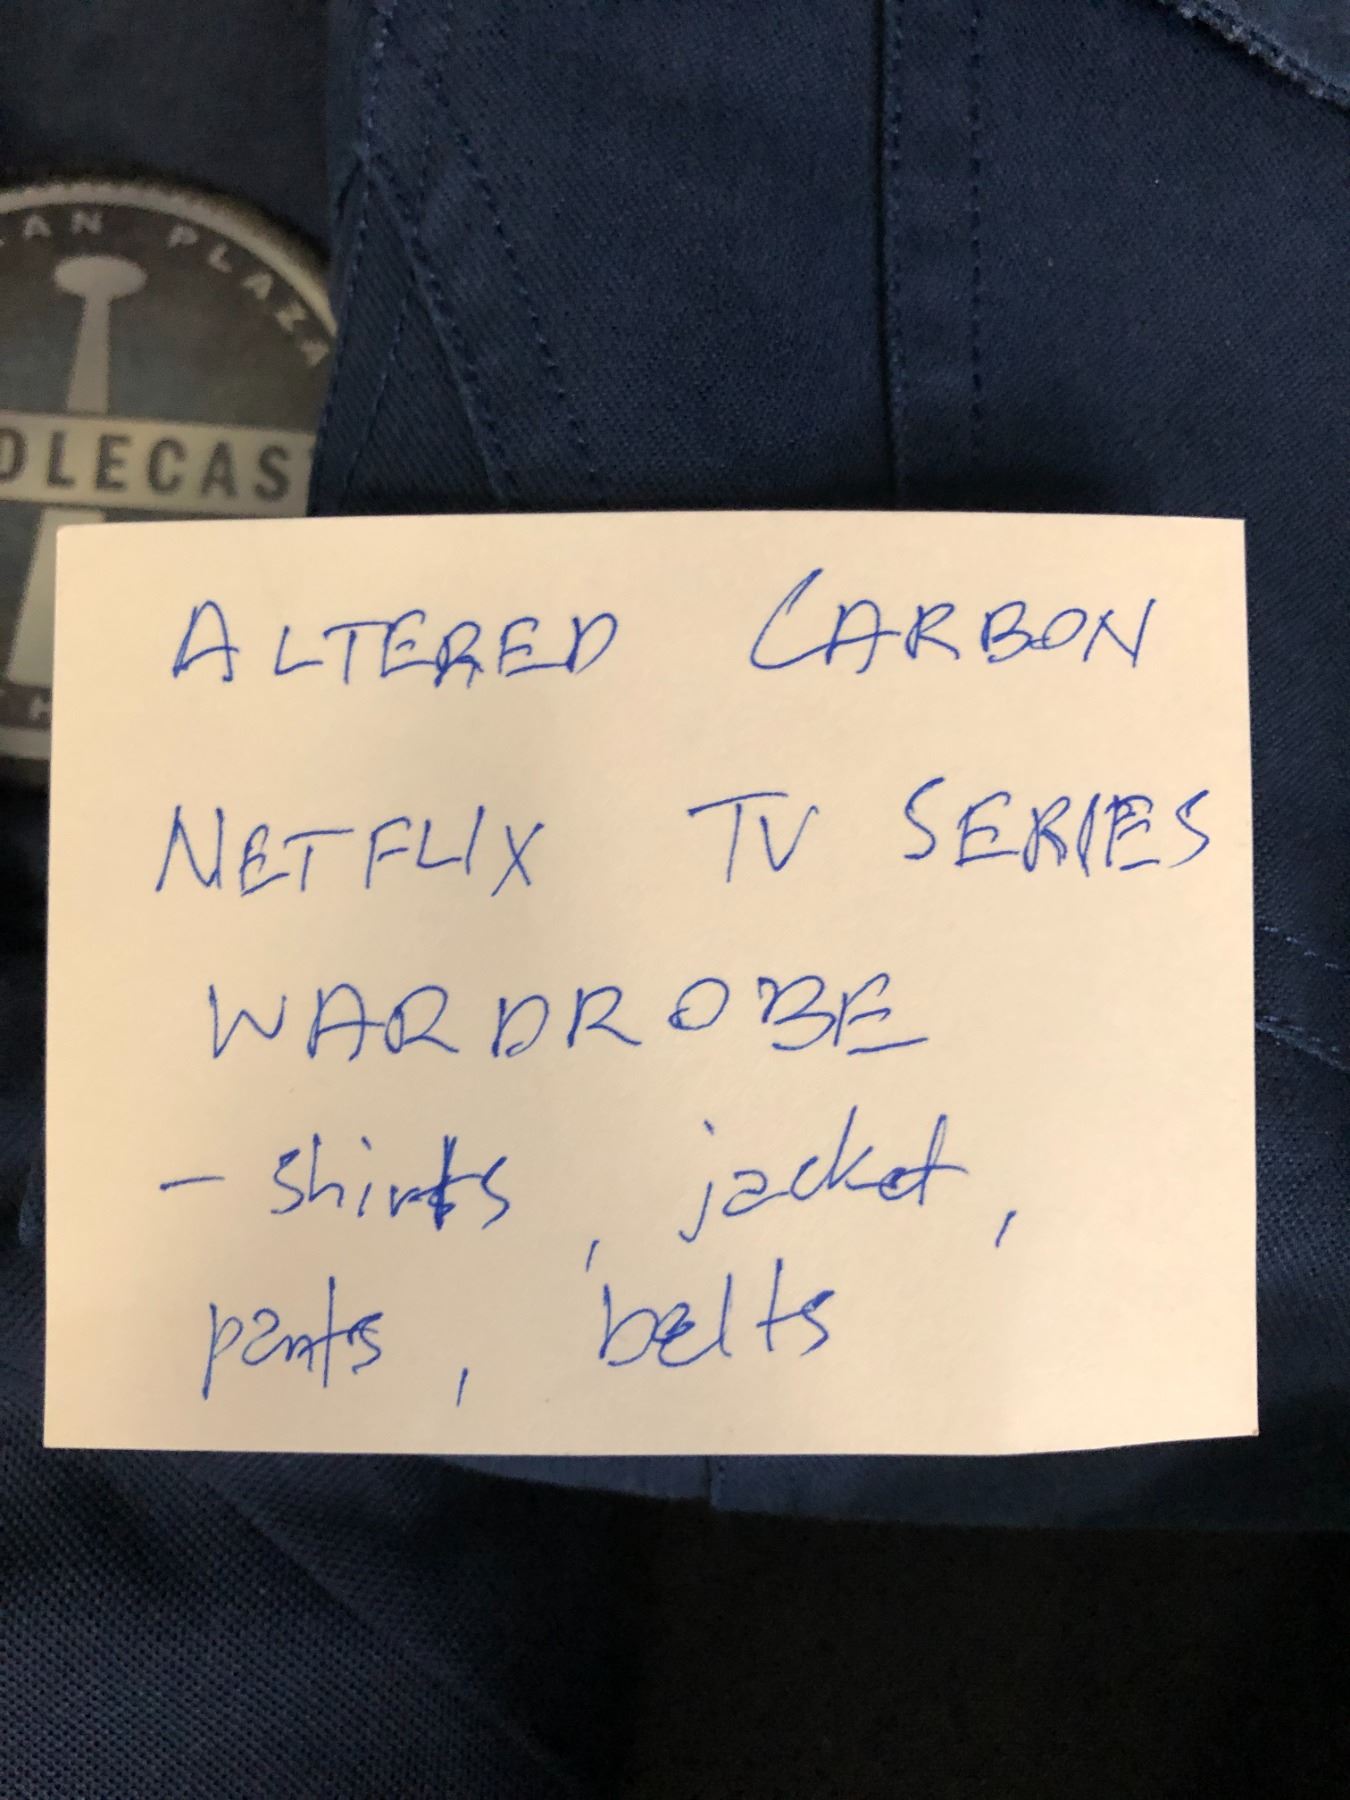 AN PLAZA
DLECAS
TH
ALTERED CARBON
NETFLIX TV SERIES
WARDROBE
- shirts, jacket,
pants, belts